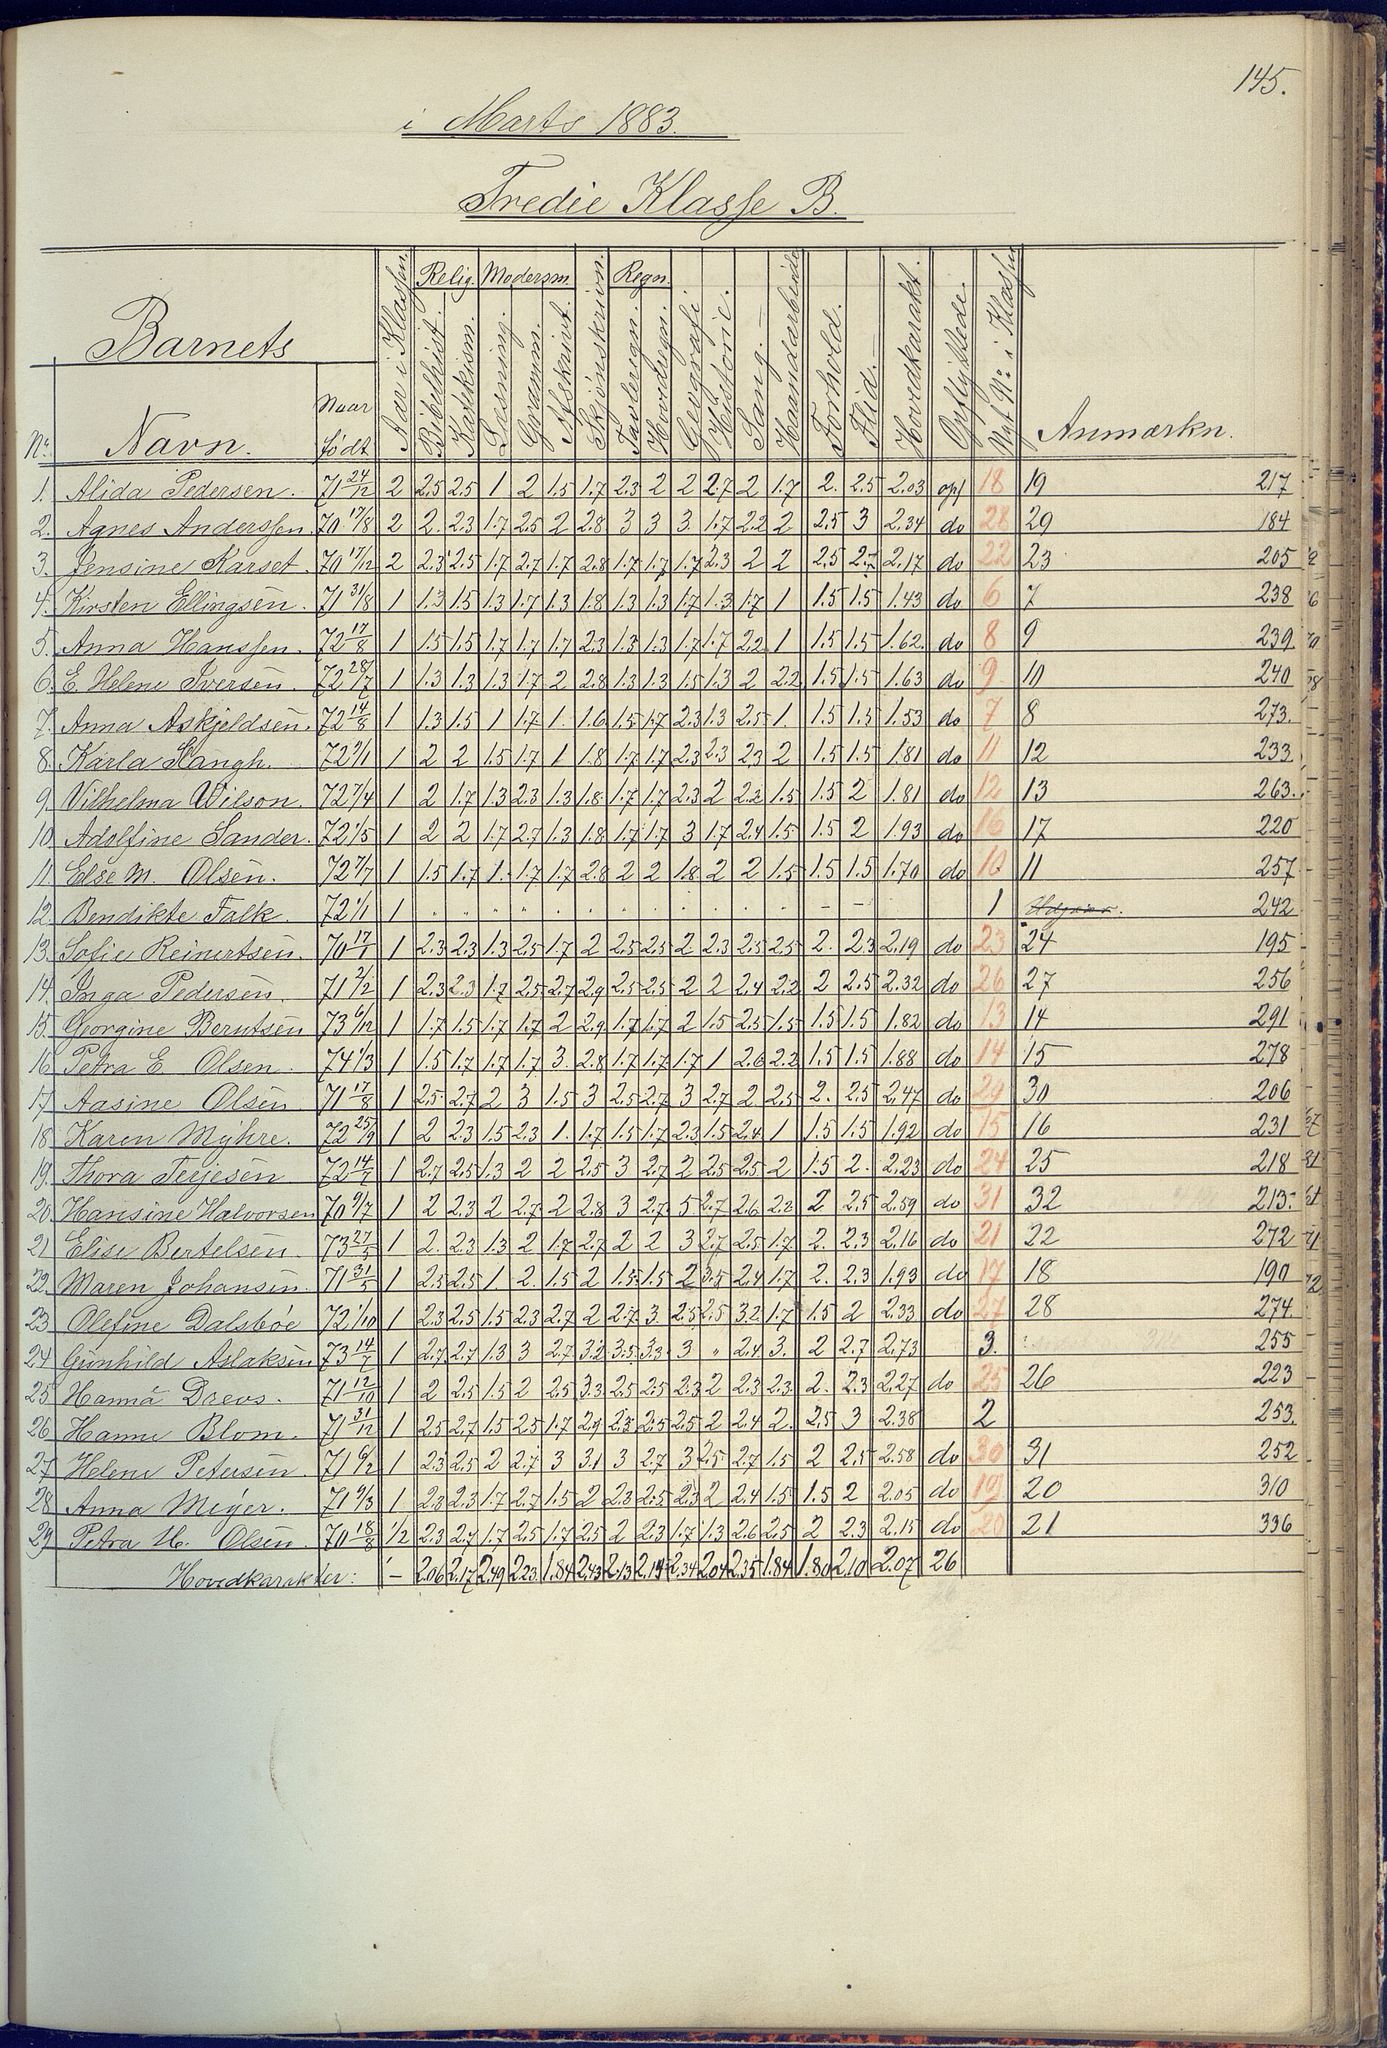 145.
i Marts 1883.
Tredie Klasse B.
Barnets
Relig. Modersm. Regn.
No. Navn. Naar født Aar i Klassen. Bibelhist. Katekism. Læsning. Gramm. Afskrivt. Skjønskrivn. Tavleregn. Hovedregn. Geografi Historie. Sang. Haandarbeide Forhold. Flid. Hovedkarakt. Opflyttede. Nyt No. i Klassen Anmærkn.
1. Alida Pedersen. 71 24/12 2 2.5 2.5 1 2 1.5 1.7 2.3 2 2 2.7 2 1.7 2. 2.5 2.03 opf 18 19 217
2. Agnes Anderssen. 70 17/8 2 2. 2.3 1.7 2.5 2 2.8 3 3 3. 1.7 2.2 2 2.5 3 2.34 do 28 29 184
3. Jensine Karset. 70 17/12 2 2.3 2.5 1.7 2.7 1.7 2.8 1.7 1.7 1.7 2.3 2 2 2.5 2.7 2.17 do 22 23 205
4. Kirsten Ellingsen. 71 31/8 1 1.3 1.5 1.3 1.7 1.3 1.8 1.3 1.3 1.7 1.3 1.7 1 1.5 1.5 1.43 do 6 7 238
5. Anna Hanssen. 72 17/8 1 1.5 1.5 1.7 1.7 1.7 2.3 1.3 1.3 1.7 1.7 2.2 1 1.5 1.5 1.62. do 8 9 239
6. E. Helene Iversen. 72 28/7 1 1.3 1.3 1.3 1.7 2 2.8 1.3 1.3 1.5 1.3 2 2.2 1.5 1.5 1.63 do 9. 10 240
7. Anna Askjeldsen. 72 14/8 1 1.3 1.5 1 1.7 1. 1.6 1.5 1.7 2.3 1.3 2.5 1. 1.5 1.5 1.53 do 7 8 273.
8. Karla Hangh. 72 9/1 1 2 2 1.5 1.7 1 1.8 1.7 1.7 2.3 2.3 2.3 2 1.5 1.5 1.81 do 11 12 233
9. Vilhelma Wilson. 72 7/4 1 2 1.7 1.3 2.3 1.3 1.8 1.7 1.7 2.3 2 2.2 1.5 1.5 2 1.81 do 12 13 263.
10. Adolfine Sander. 72 1/5 1 2 2 1.7 2.7 1.3 1.8 1.7 1.7 3 1.7 2.4 1.5 1.5 2 1.93 do 16 17 220
11. Else M. Olsen. 72 7/7 1 1.5 1.7 1. 1.7 1.7 2.8 2 2 1.8 2 2 1.5 1.5 1.5 1.70 do 10 11 257
12. Bendikte Falk. 72 1/1 1 1 242
13. Sofie Reinertsen. 70 17/1 1 2.3 2.3 1.3 2.5 1.7 2 2.5 2.5 2. 2.3 2.5 2.5 2. 2.3 2.19 do 23 24 195
14. Inga Pedersen. 71 2/2 1 2.3 2.3 1.7 2.5 2.7 2.9 2.5 2.5 2 2 2.4 2.2 2 2.5 2.32 do 26 27 256
15. Gjorgine Berntsen 73 6/12 1 1.7 1.5 1.7 1.7 2 2.9 1.7 1.7 2 1.5 2.5 1.5 1.5 1.5 1.82 do 13 14 291
16. Petra E. Olsen. 74 1/3 1 1.5 1.7 1.7 1.7 3. 2.8 1.7 1.7 1.7 1 2.6 2.2 1.5 1.5 1.88 do 14 15 278
17. Aasine Olsen. 71 17/8 1 2.5 2.7 2 3 1.5 3 2.5 2.7 3 2.7 2 2.5 2. 2.5 2.47 do 29 30 206
18. Karen Myhre. 72 25/9 1 2 2.3 1.5 2.3 1. 1.7 1.5 1.7 2.3 1.5 2.4 1 1.5 1.5 1.92 do 15 16 231
19. Thora Terjesen 72 14/7 1 2.7 2.5 1.3 2 2 2.5 3 2.7 2 2.5 2.5 2 1.5 2. 2.23 do 24 25 218
20. Hansine Halvorsen 70 9/7 1 2 2.3 2 2.7 2 2.8 3 2.7 5 2.7 2.6 2.2 2 2.5 2.59 do 31 32 213.
21 Elise Bertelsen. 73 27/5 1 2. 2.3 1.3 2 1.7 2.7 2 2 3 2.7 2.5 1.7 2. 2.3 2.16 do 21 22 272
22. Maren Johansen. 71 31/5 1 2.5 2.5 1. 2. 1.5 2 1.5 1.5 2 3.5 2.4 1.7 2. 2.3 1.93 do 17 18 190
23 Olefine Dalsbøe 72 1/10 1 2.3 2.5 1.5 2.3 2.7 2 2.7 3. 2.5 2.5 3.2 1.7 1.5 2 2.33 do 27 28 274.
24 Gunhild Aslaksen 73 14/7 1 2.7 2.7 1.3 3 2.7 3.2 3.5 3.3 3 " 2.4 3. 2 2.7 2.73 3. 255
25 Hanna Drevs. 71 12/10 1 2 2.5 1.5 2 2.5 3.3 2.5 2.5 2.3 2 2.3 2.3. 2. 2.3 2.27 do 25 26 223
26 Hanne Blom. 71 31/12 1 2.5 2.7 1.5 2.5 1.7 2.9 2.3 2.5 2.5 2 2.4 2. 2.5 3 2.38 2 253.
27 Helene Petersen. 71 6/2 1 2.3 2.5 2 2.7 3 3.1 3 2.7 3 2.5 2.7 1.5 2 2.5 2.58 do 30 31 252
28 Anna Meyer. 71 9/3 1 2.3 2.3 1.7 2.7 1.5 2 2.3 2.5 2.3 2 2.4 1.5 1.5 2 2.05 do 19 20 310
29 Petra H. Olsen. 70 18/8 1/2 2.3 2.7 1.7 2.5 1.7 2.5 2 2.3 1.7 1.3 2.6 2.5 2 2.3 2.15 do 20 21 336
Hovedkarakter: – 2.06 2.17 2.49 2.23 1.84 2.43 2.13 2.14 2.34 2.04 2.35 1.84 1.80 2.10 2.07 26